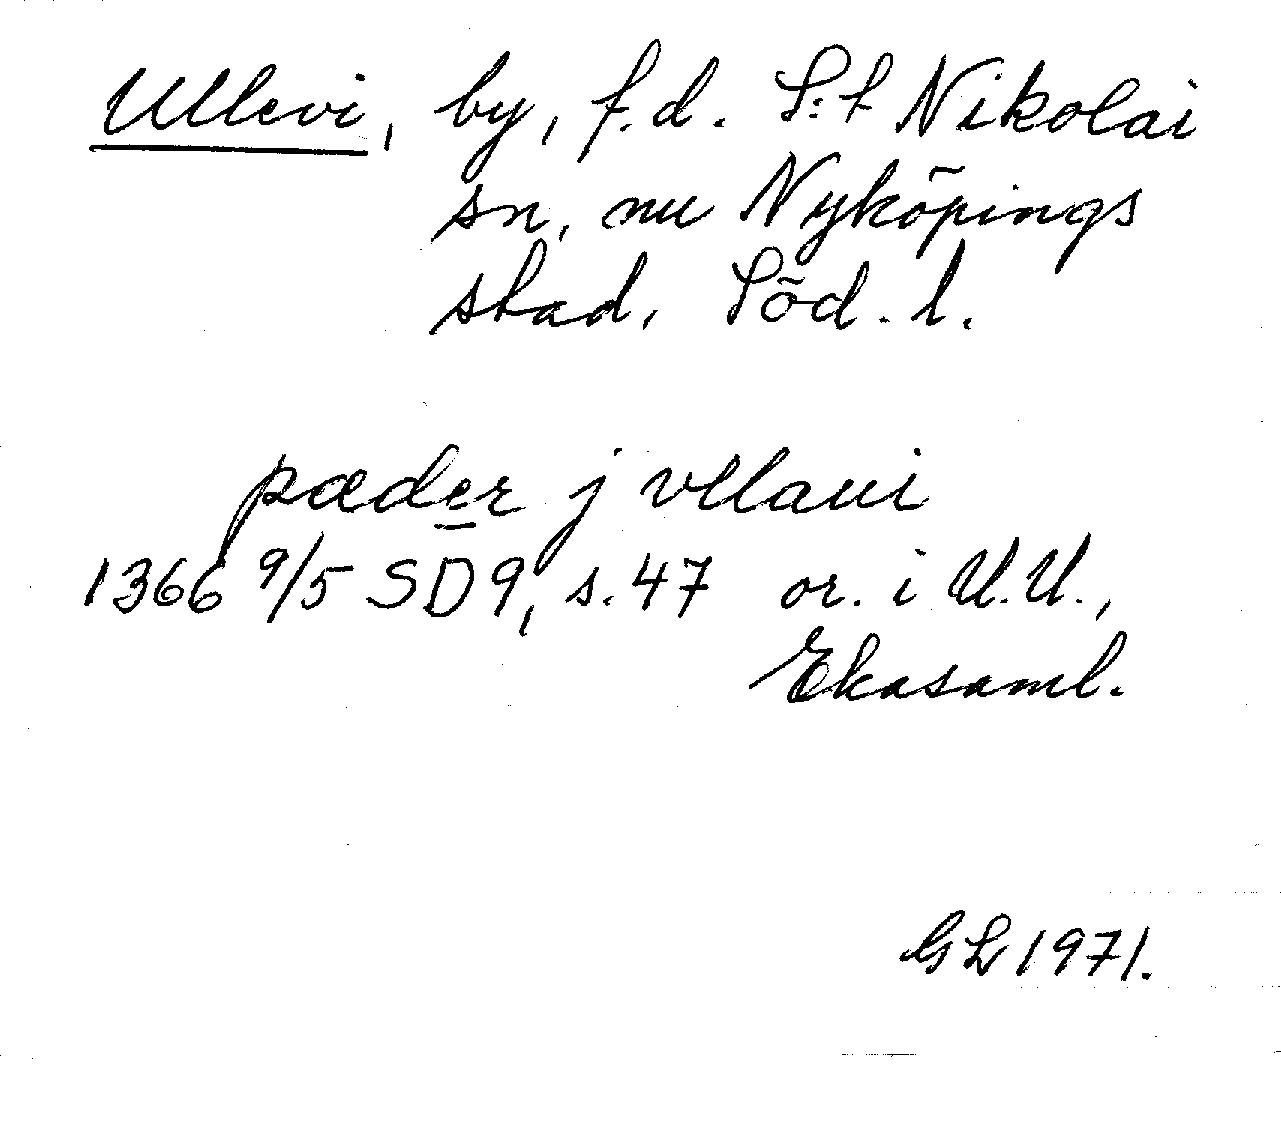 Ullevi, by, f.d. S:t Nikolai
sn, nu Nyköpings
stad, Söd. l.
pæder j vllaui
1366 9/5 SD 9, s. 47 or. i U.U.,
Ekasaml.
GL 1971.